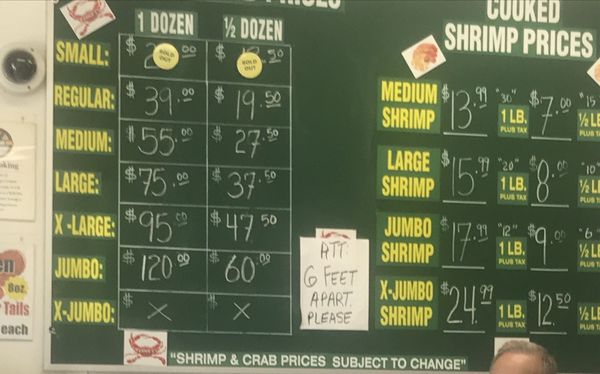 PRICES
1 DOZEN ½ DOZEN
SMALL: $ .00 SOLD OUT $ .50 SOLD OUT
REGULAR: $39.00 $19.50
MEDIUM: $55.00 $27.50
LARGE: $75.00 $37.50
X-LARGE: $95.00 $47.50
JUMBO: $120.00 $60.00
X-JUMBO: $ X $ X
COOKED
SHRIMP PRICES
MEDIUM SHRIMP $13.99 "30" 1 LB. PLUS TAX $7.00 "15 ½ LB PLUS TA
LARGE SHRIMP $15.99 "20" 1 LB. PLUS TAX $8.00 "10" ½ LB PLUS TA
JUMBO SHRIMP $17.99 "12" 1 LB. PLUS TAX $9.00 "6" ½ LB PLUS TA
X-JUMBO SHRIMP $24.99 1 LB. PLUS TAX $12.50 ½ LB PLUS TA
ATT:
6 FEET
APART.
PLEASE
"SHRIMP & CRAB PRICES SUBJECT TO CHANGE"
king
en
8oz.
Tails
each